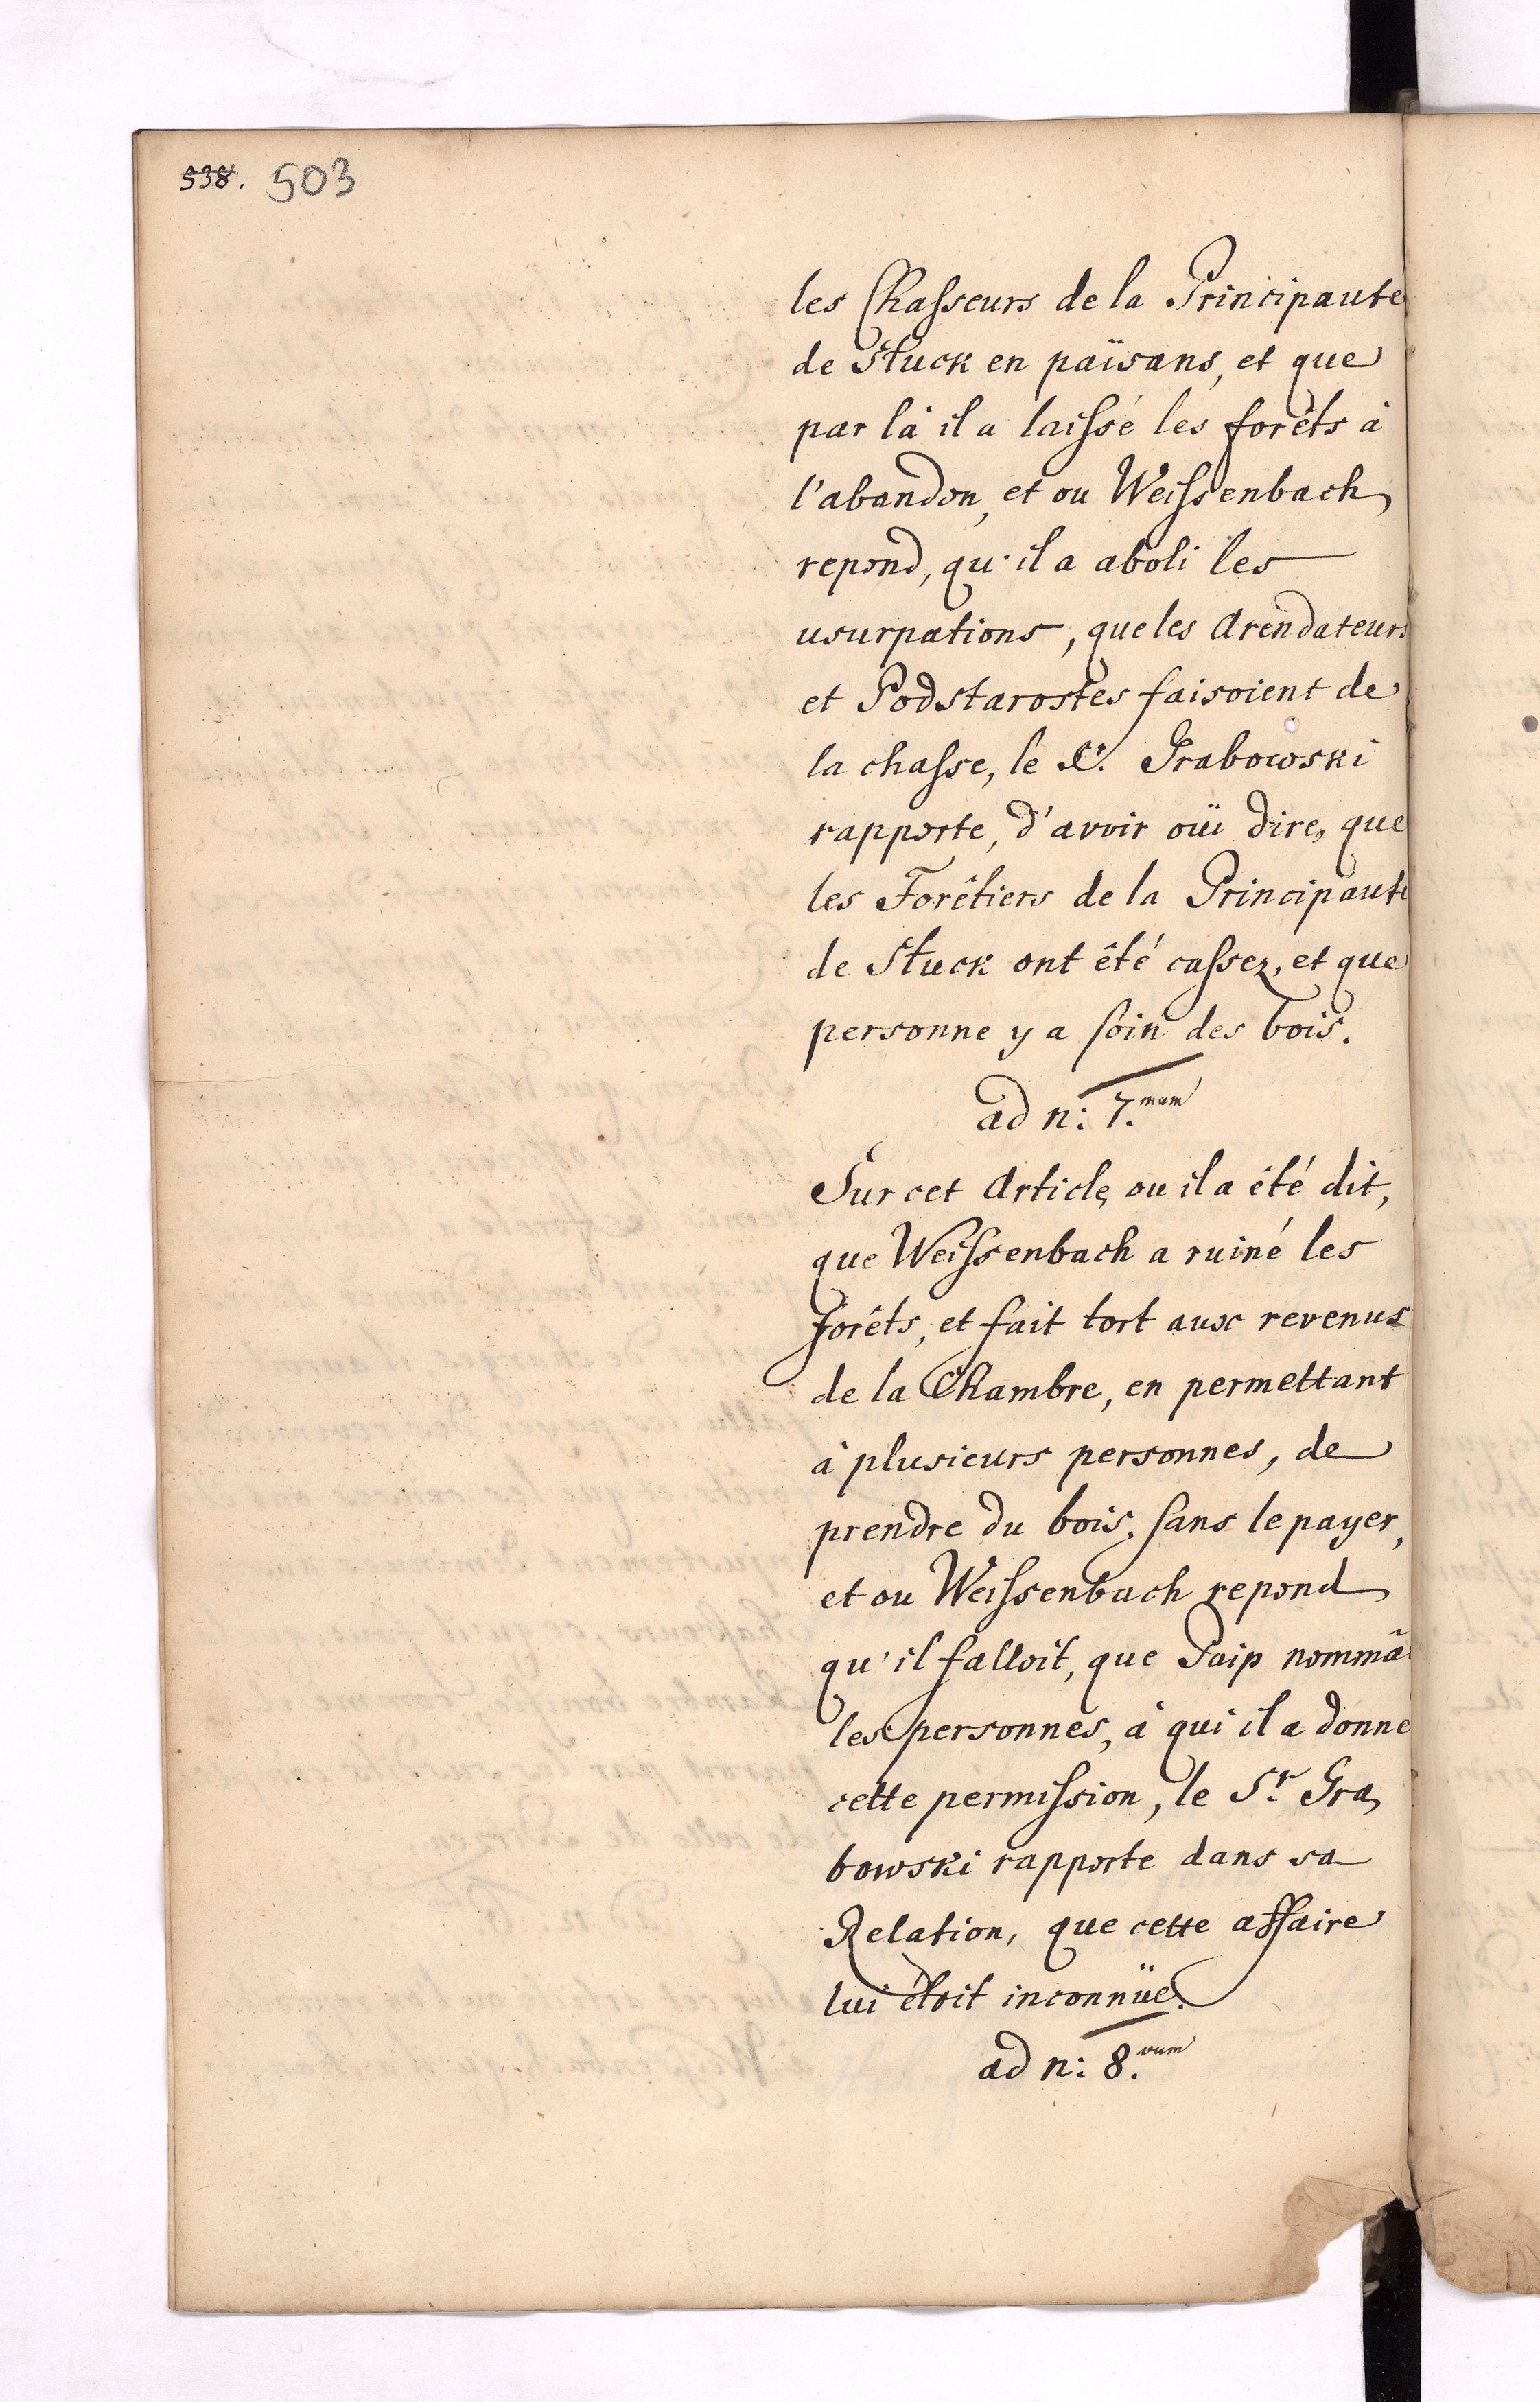 538. 503
les Chasseurs de la Principauté
de Sluck en païsans, et que
par là il a laissé les forêts à
l'abandon, et ou Weissenbach
repond, qu'il a aboli les
usurpations, que les Arendateurs
et Podstarostes faisoient de
la chasse, le Sr. Grabowski
rapporte, d'avoir oüi dire, que
les Forêtiers de la Principauté
de Sluck ont êté cassez, et que
personne y a soin des bois.
ad n: 7.mum
Sur cet Article, ou il a êté dit,
que Weissenbach a ruiné les
forêts, et fait tort aux revenus
de la Chambre, en permettant
à plusieurs personnes, de
prendre du bois, sans le payer,
et ou Weissenbach repond
qu'il falloit, que Paip nommâ
les personnes, à qui il a donné
cette permission, le Sr. Gra,
bowski rapporte dans sa
Relation, que cette affaire
lui êtoit inconnüe.
ad n: 8.vum